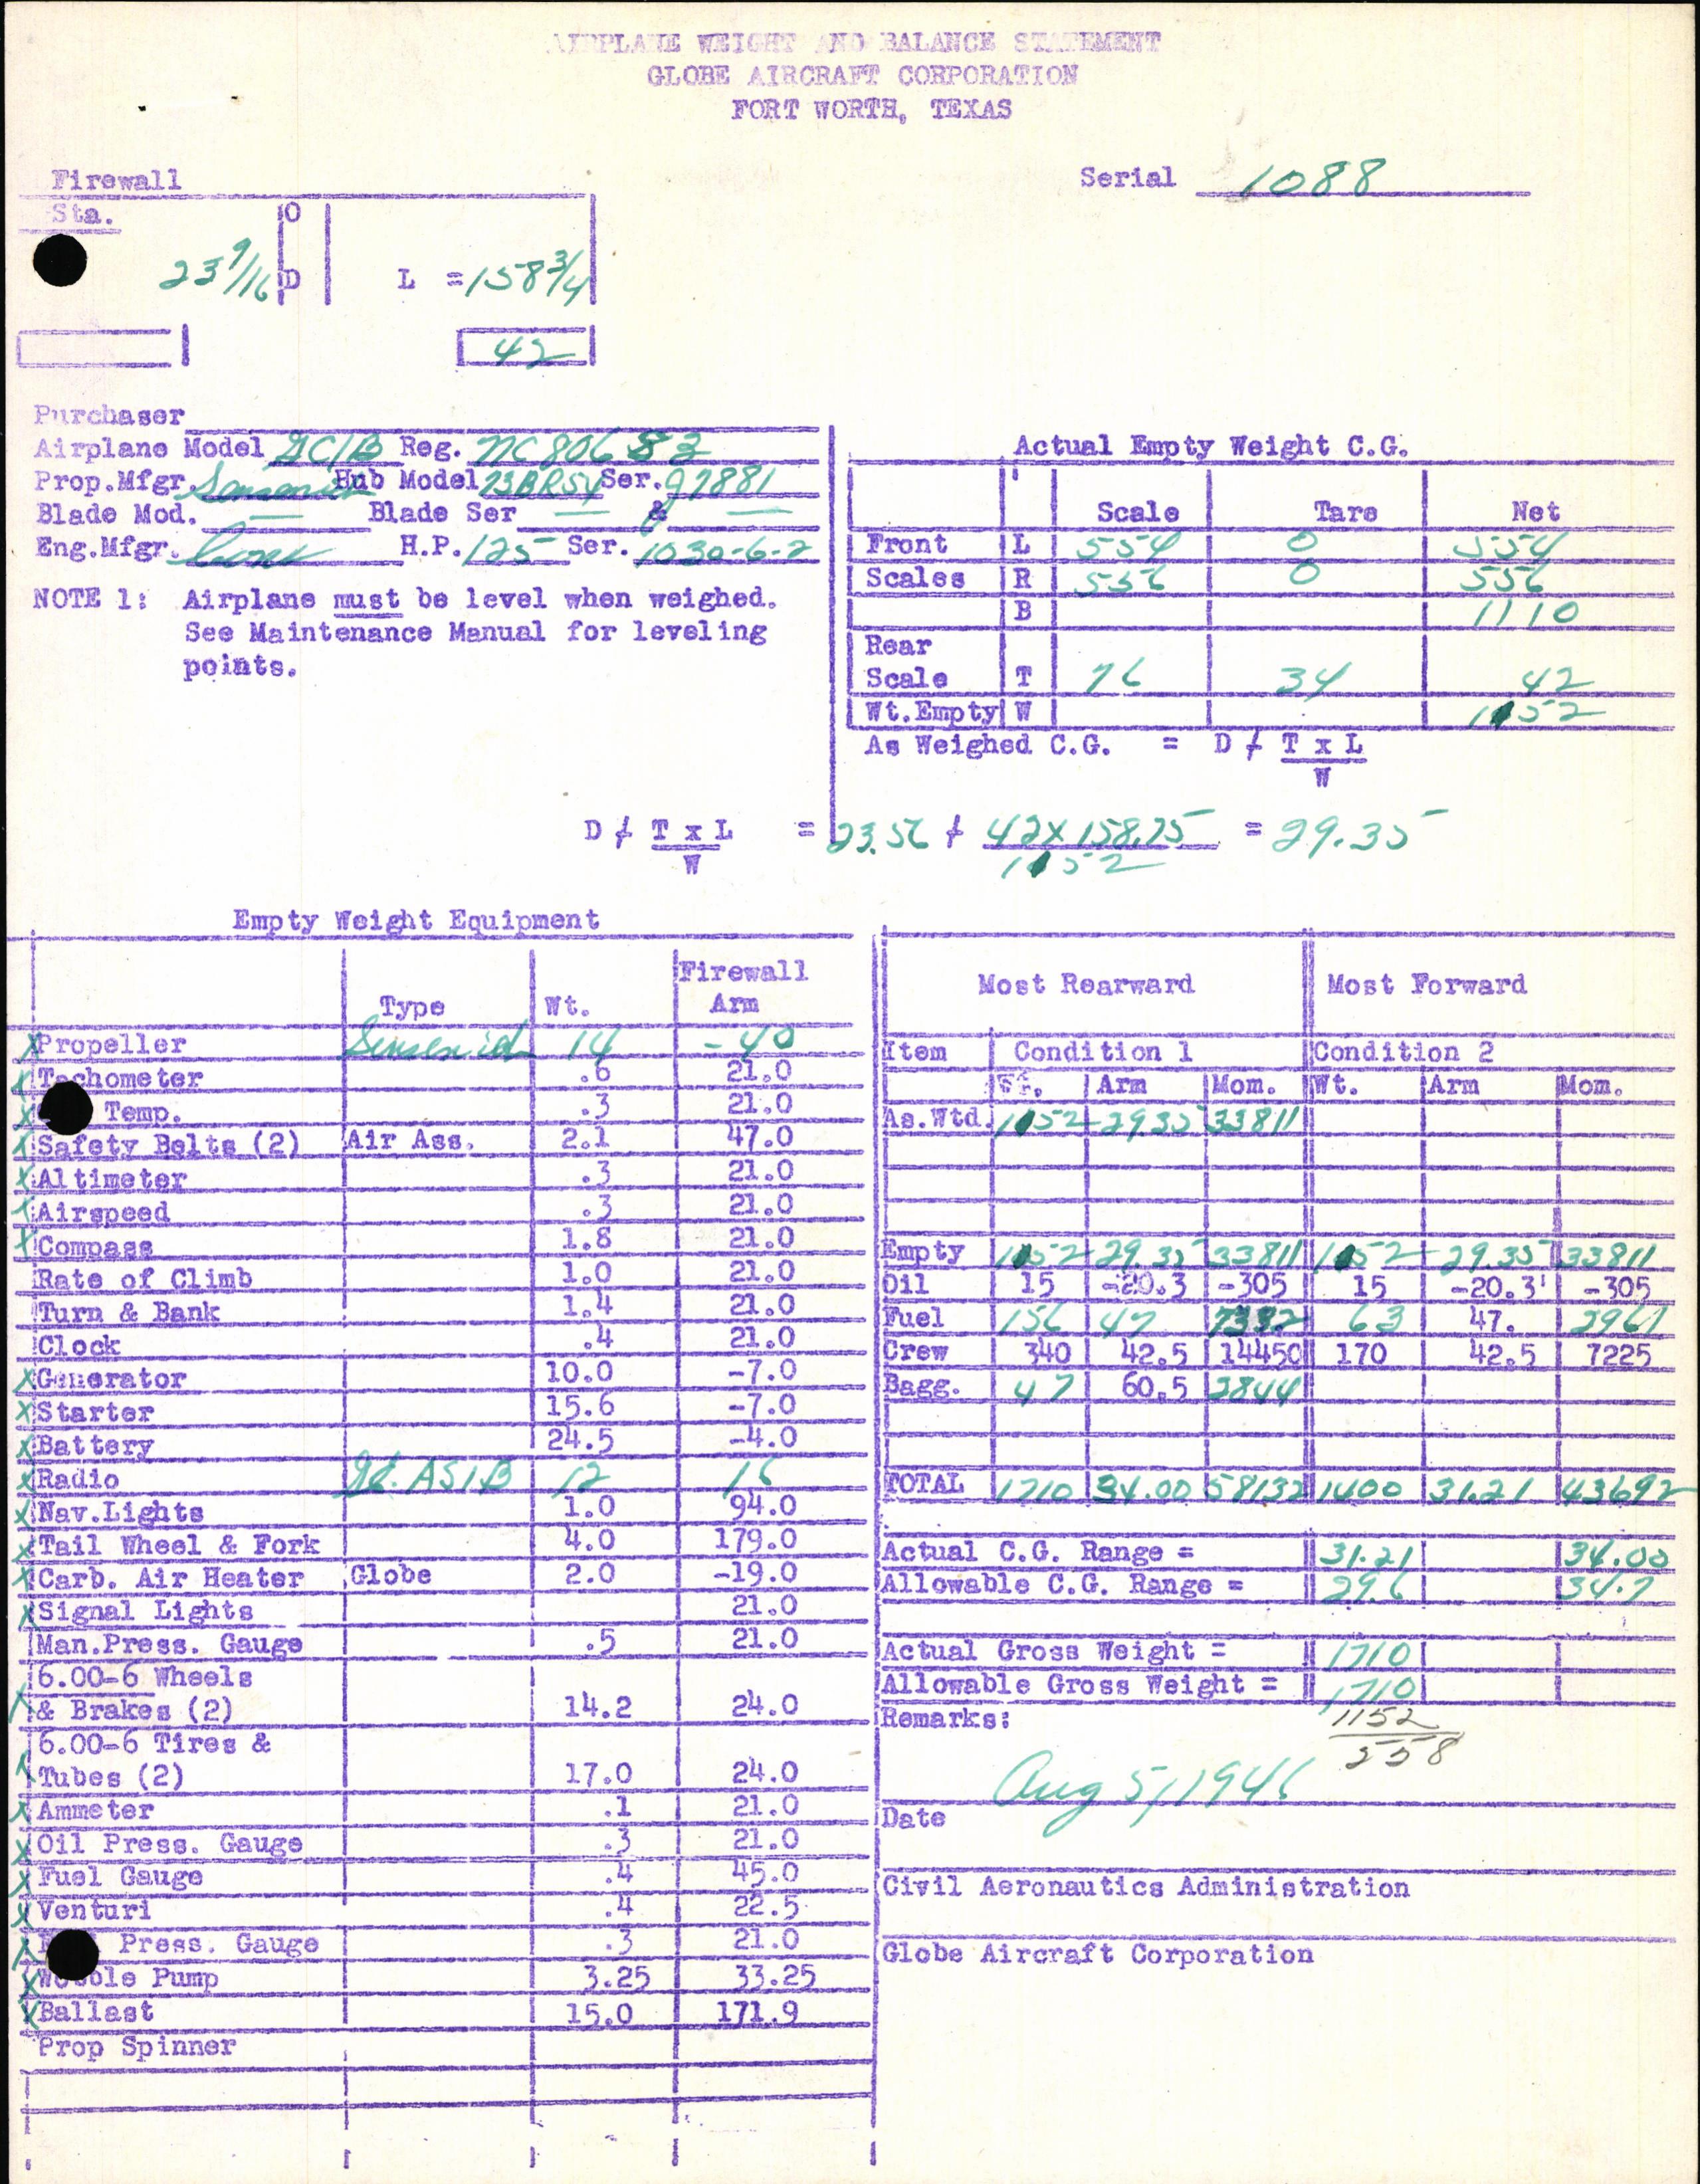 AIRPLANE WEIGHT AND BALANCE STATEMENT
GLOBE AIRCRAFT CORPORATION
FORT WORTH, TEXAS
Serial 1088
Firewall
Sta.
O
23 9/16 D L = 158 3/4
42
Purchaser
Airplane Model GC1B Reg. NC80683
Prop.Mfgr. Sensenich Hub Model 73BR54 Ser. 97881
Blade Mod. — Blade Ser — & —
Eng.Mfgr. H.P. 125 Ser. 1030-6-2
NOTE 1: Airplane must be level when weighed.
See Maintenance Manual for leveling
points.
Actual Empty Weight C.G.
Scale Tare Net
Front L 554 0 554
Scales R 556 0 556
B 1110
Rear
Scale T 76 34 42
Wt.Empty W 1152
As Weighed C.G. = D ⌿ T x L
W
D ⌿ T x L = 23.56 ⌿ 42 x 158.75 = 29.35
W 1152
Empty Weight Equipment
Type Wt. Firewall Arm
X Propeller Sensenich 14 -40
X Tachometer .6 21.0
X Temp. .3 21.0
X Safety Belts (2) Air Ass. 2.1 47.0
X Altimeter .3 21.0
X Airspeed .3 21.0
X Compass 1.8 21.0
Rate of Climb 1.0 21.0
Turn & Bank 1.4 21.0
Clock .4 21.0
X Generator 10.0 -7.0
X Starter 15.6 -7.0
X Battery 24.5 -4.0
X Radio AS1B 12 16
X Nav.Lights 1.0 94.0
X Tail Wheel & Fork 4.0 179.0
X Carb. Air Heater Globe 2.0 -19.0
X Signal Lights 21.0
Man.Press. Gauge .5 21.0
6.00-6 Wheels
X & Brakes (2) 14.2 24.0
6.00-6 Tires &
X Tubes (2) 17.0 24.0
X Ammeter .1 21.0
X Oil Press. Gauge .3 21.0
X Fuel Gauge .4 45.0
X Venturi .4 22.5
X Press. Gauge .3 21.0
X Wobble Pump 3.25 33.25
X Ballast 15.0 171.9
Prop Spinner
Most Rearward Most Forward
Item Condition 1 Condition 2
Wt. Arm Mom. Wt. Arm Mom.
As.Wtd. 1152 29.35 33811
Empty 1152 29.35 33811 1152 29.35 33811
Oil 15 -20.3 -305 15 -20.3 -305
Fuel 156 47 7332 63 47. 2961
Crew 340 42.5 14450 170 42.5 7225
Bagg. 47 60.5 2844
TOTAL 1710 34.00 58132 1400 31.21 43692
Actual C.G. Range = 31.21 34.00
Allowable C.G. Range = 29.6 34.7
Actual Gross Weight = 1710
Allowable Gross Weight = 1710
Remarks: 1152
558
Aug 5, 1946
Date
Civil Aeronautics Administration
Globe Aircraft Corporation